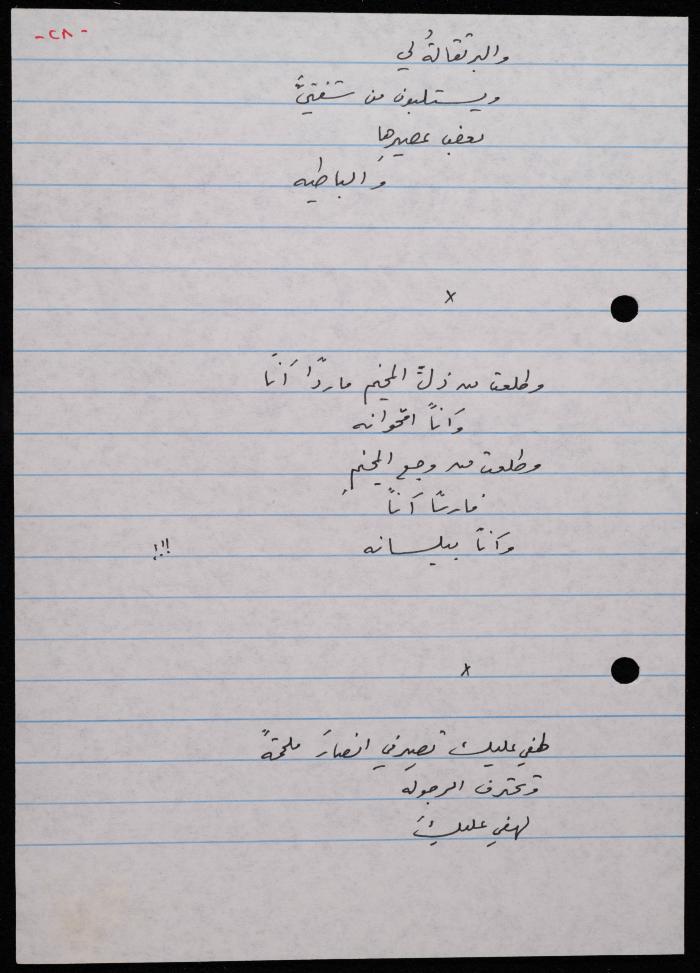 -٢٨-
والبرتقالةُ لي
ويستلبون من شفتيَّ
بعض عصيرها
والباطيه
x
وطلعت من ذلّ المخيم مارداً آناً
وآناً اقحوانه
وطلعت من وجع المخيمِ
فارساً آناً
وآناً بيلسانه !!!
x
لهفي عليك تصيرفي انصارَ ملحمةً
وتحترف الرجوله
لهفي عليكَ